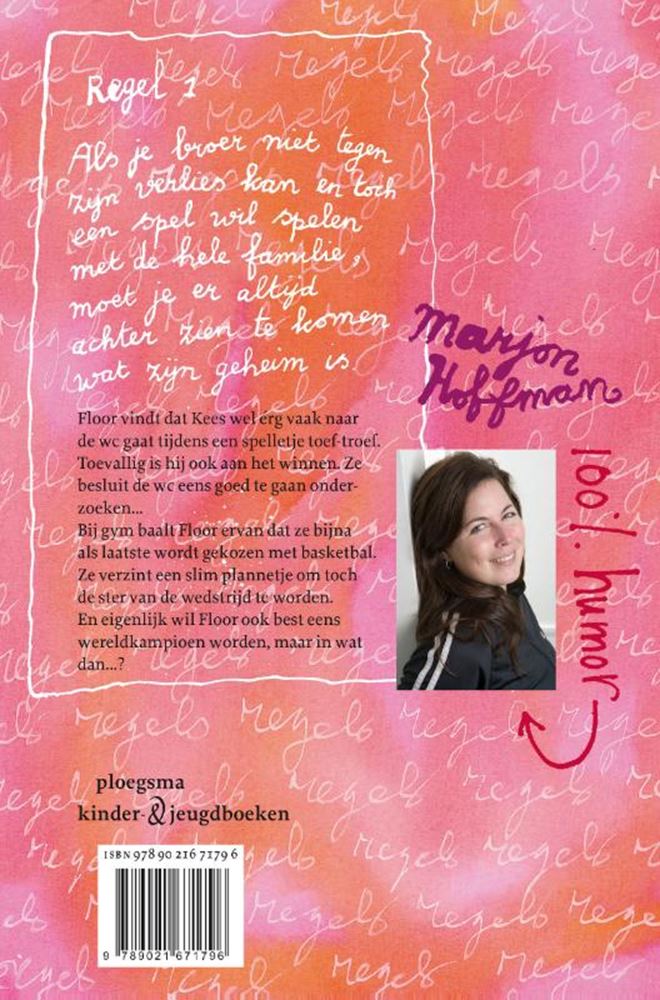 Regel 1
Als je broer niet tegen
zijn verlies kan en toch
een spel wil spelen
met de hele familie,
moet je er altijd
achter zien te komen
wat zijn geheim is.
Floor vindt dat Kees wel erg vaak naar
de wc gaat tijdens een spelletje toef-troef.
Toevallig is hij ook aan het winnen. Ze
besluit de wc eens goed te gaan onder-
zoeken...
Bij gym baalt Floor ervan dat ze bijna
als laatste wordt gekozen met basketbal.
Ze verzint een slim plannetje om toch
de ster van de wedstrijd te worden.
En eigenlijk wil Floor ook best eens
wereldkampioen worden, maar in wat
dan...?
Marjon
Hoffman
100% humor
ploegsma
kinder-& jeugdboeken
ISBN 978 90 216 7179 6
9 789021 671796